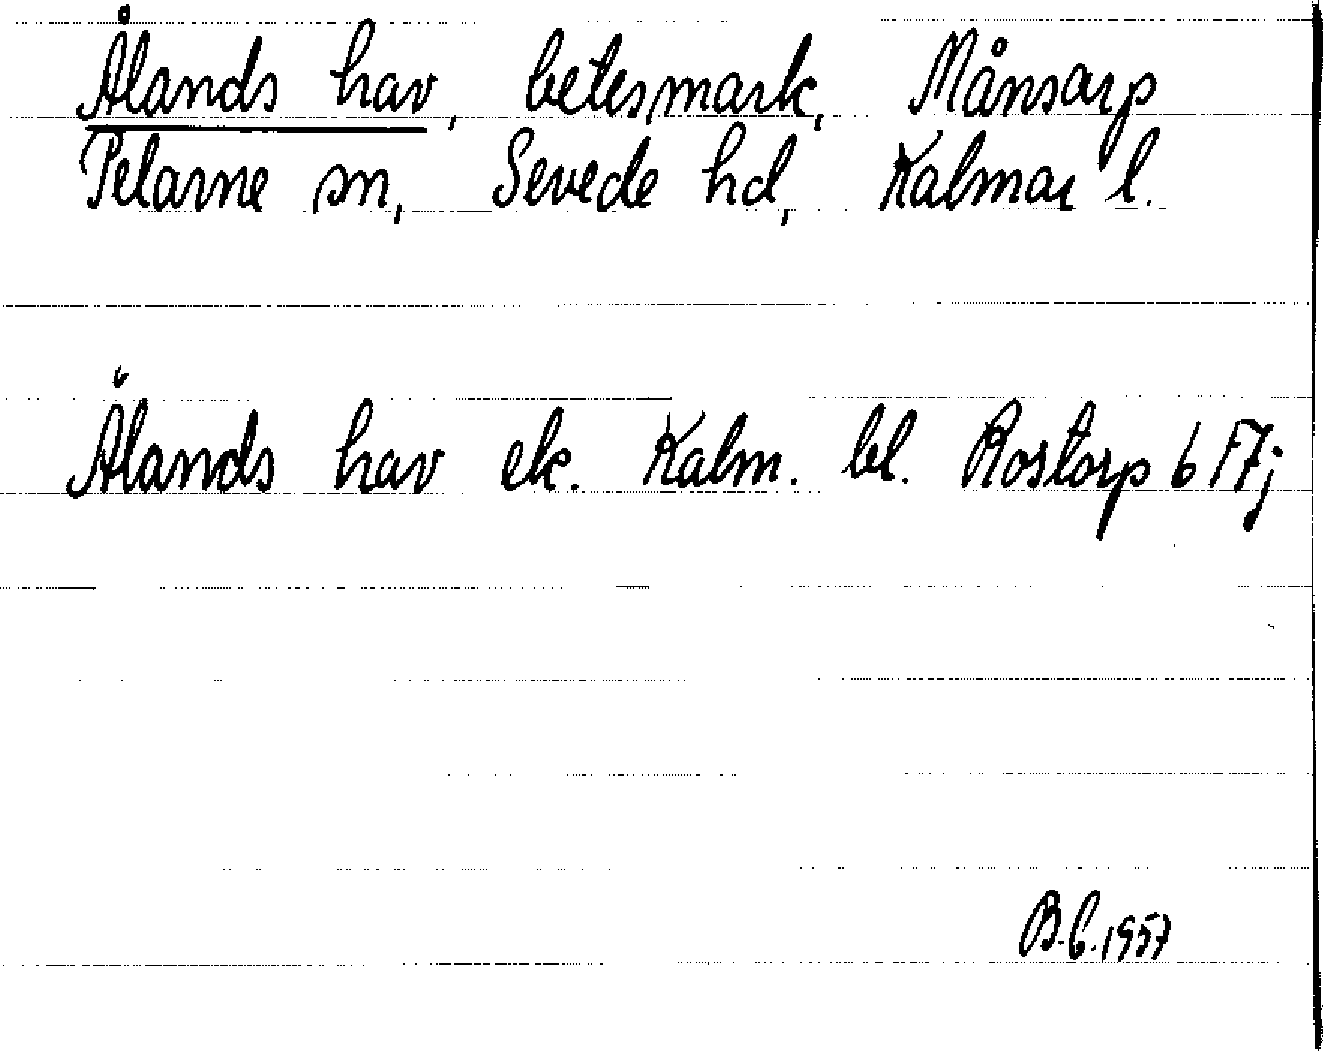 Ålands hav, betesmark, Månsarp
Pelarne sn, Sevede hd, Kalmar l.
Ålands hav ek. Kalm. bl. Rostorp 6 F7j
B.C. 1957